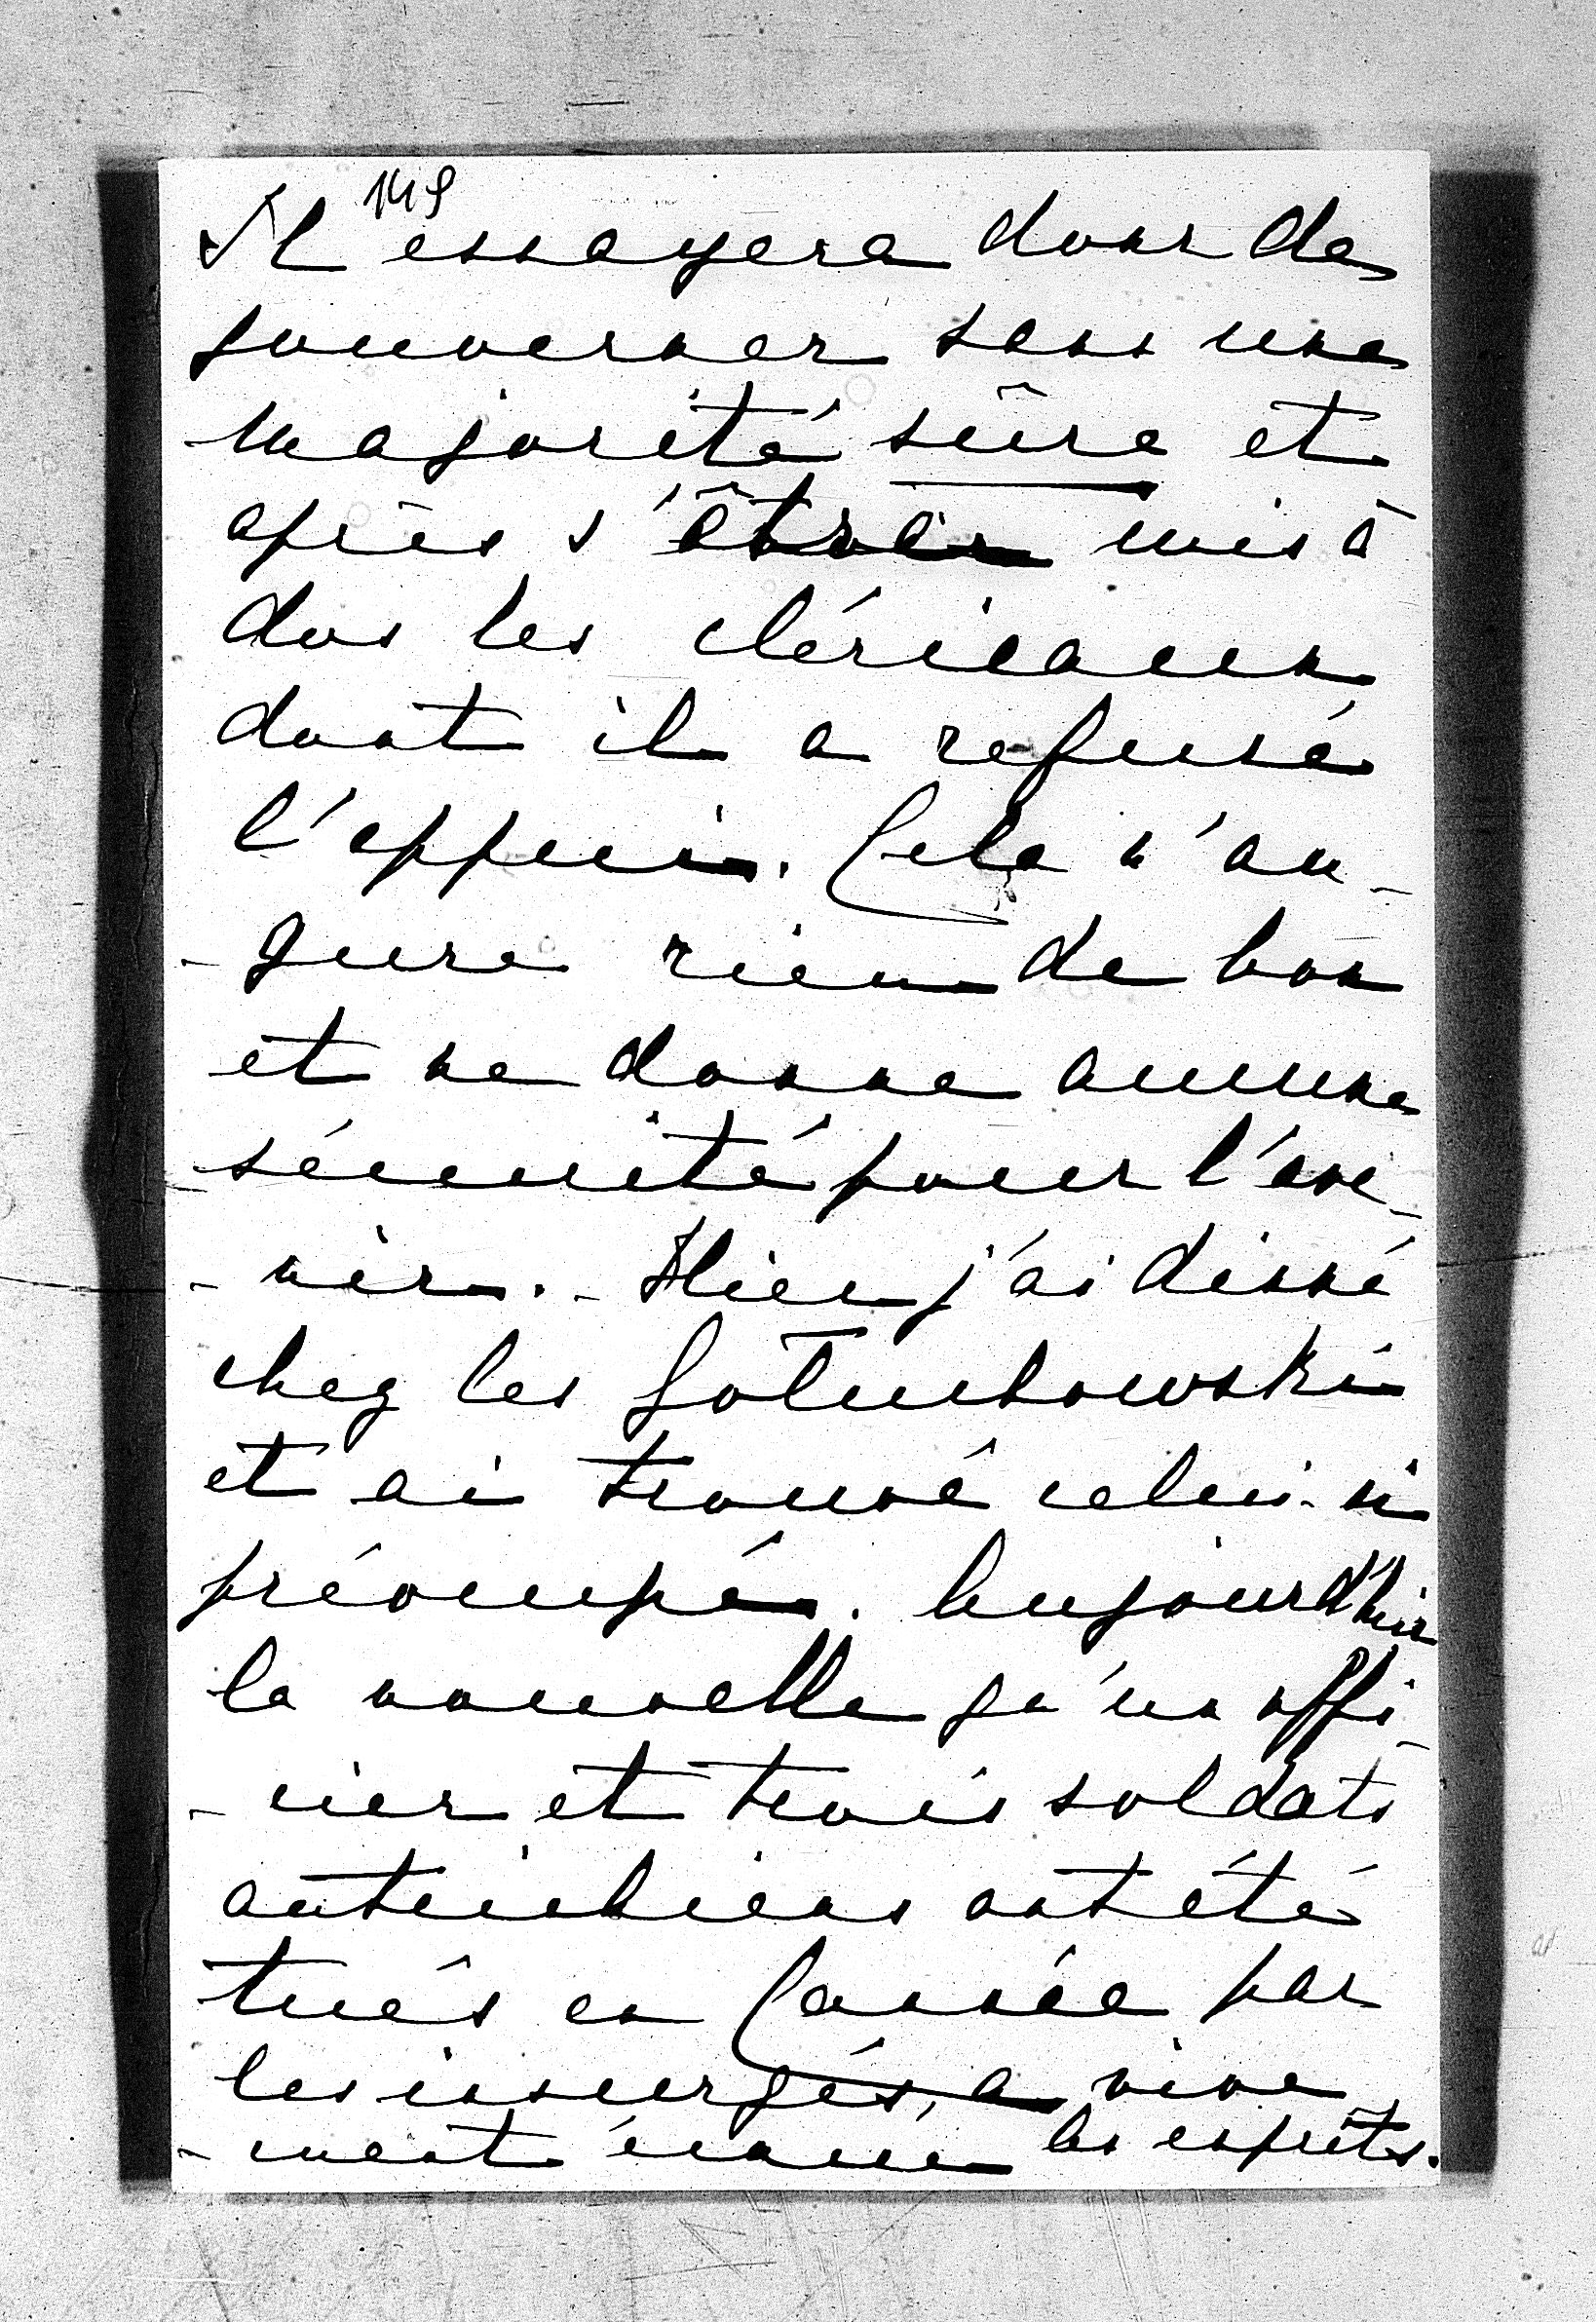 149
Il essayera donc de
gouverner sans une
majorité sûre et
après s'être mis à
dos les cléricaux
dont il a refusé
l'appui. Cela n'au-
-gure rien de bon
et ne donne aucune
sécurité pour l'ave-
-nir. - Hier j'ai dîné
chez les Goluchowski
et ai trouvé celui-ci
préoccupé. Aujourd'hui
la nouvelle qu'un offi-
-cier et trois soldats
autrichiens ont été
tués en Canée par
les insurgés, a vive
-ment ému les esprits.